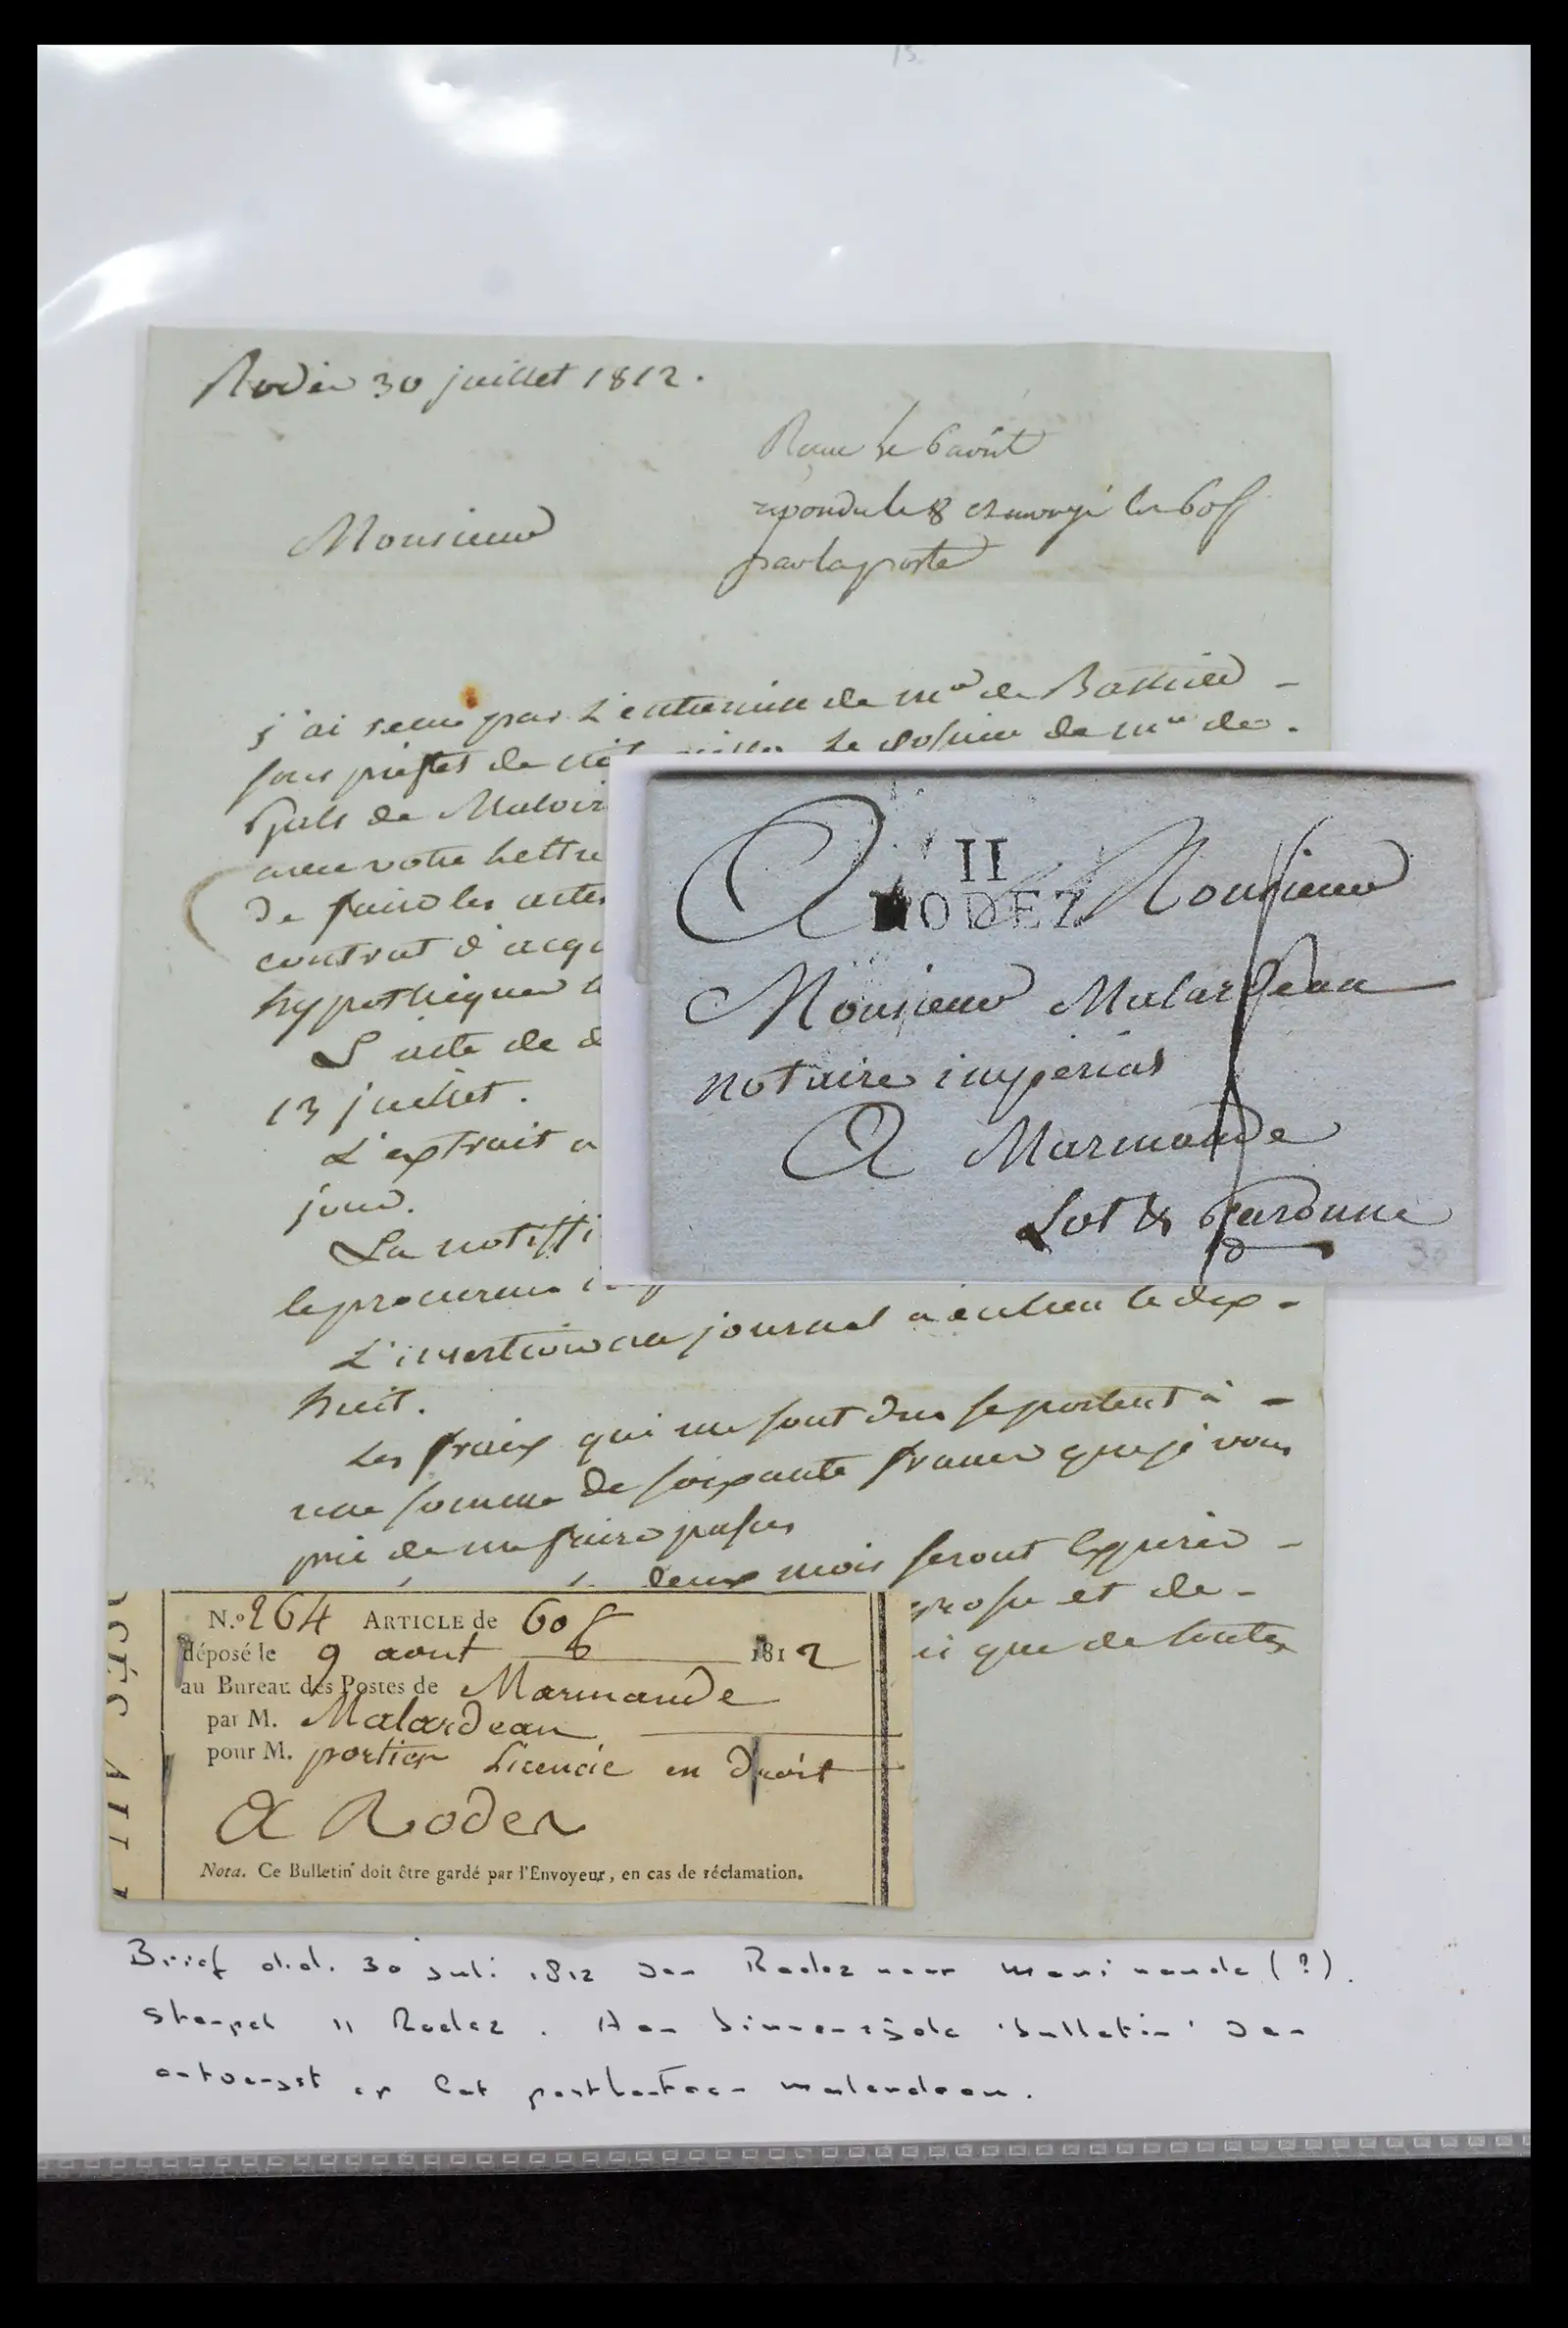 15
Rodez 30 juillet 1812.
Recue le 6 août
repondu le 8 et envoyé les 60ff
par la poste
Monsieur
j'ai recue par L'entremise de mr de
sous prefet de le dossier de mr de
de
avec votre lettre
De faire les actes
contrat d'acqu
hypothequer
L'acte de d
13 juillet.
L'extrait a
jour.
La notiffi
le procureur
L'insertion au journal a eu lieu le dix-
huit.
Les fraix qui me sont dus se portent à -
une somme de soixante francs que je vous
prie de me faire passer
deux mois seront Expirés -
et de -
que de toutes
II
RODEZ
A Monsieur
Monsieur Malardeau
notaire imperial
A Marmande
Lot & Garonne
30
N.º 264 ARTICLE de 60 f
déposé le 9 aout 1812
au Bureau des Postes de Marmande
par M. Malardeau
pour M. portier Licencié en droit
A Rodez
Nota. Ce Bulletin doit être gardé par l'Envoyeur, en cas de réclamation.
Brief d.d. 30 juli 1812 van Rodez naar Marimande (?).
Stempel 11 Rodez. Aan binnenzijde 'bulletin' van
ontvangst op het postkantoor malardeau.